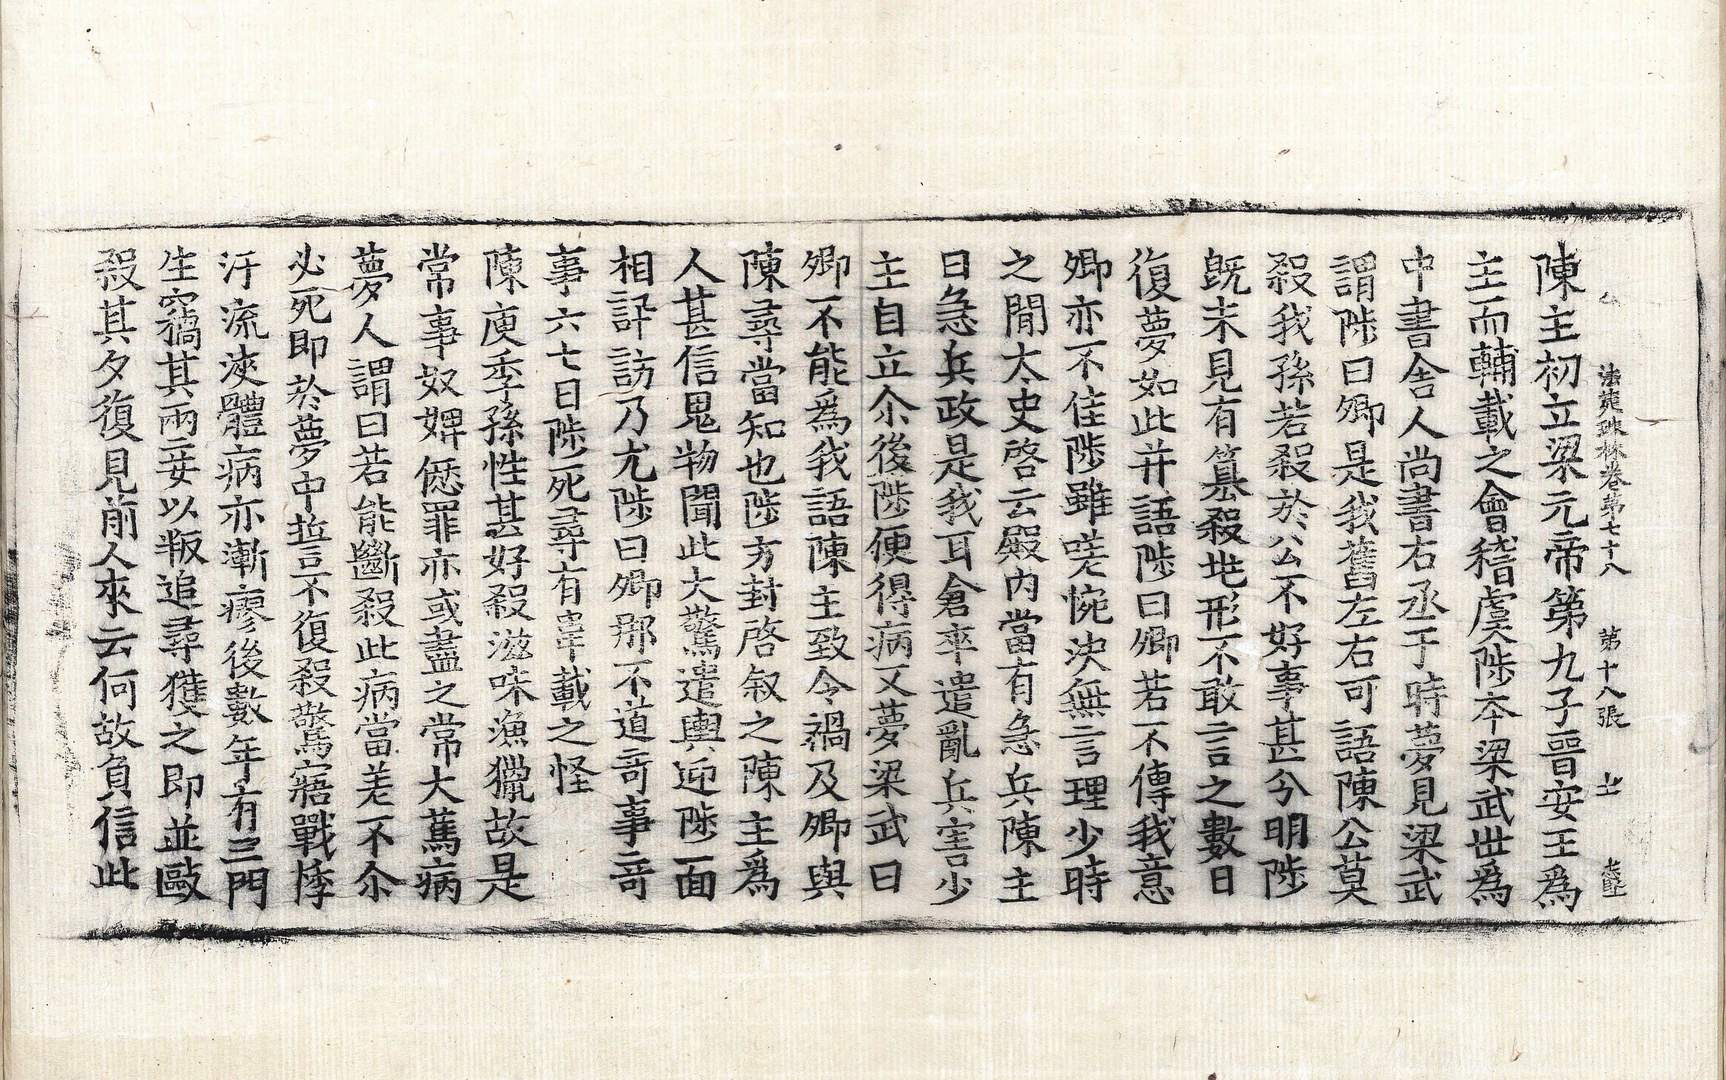 法苑珠林卷第七十八　第十八張
陳主初立梁元帝第九子晉安王爲
主而輔載之會稽虞陟本梁武世爲
中書舍人尚書右丞于時夢見梁武
謂陟曰卿是我舊左右可語陳公莫
殺我孫若殺於公不好事甚分明陟
旣未見有篡殺地形不敢言之數日
復夢如此并語陟曰卿若不傳我意
卿亦不佳陟雖嗟惋決無言理少時
之閒太史啓云殿內當有急兵陳主
曰急兵政是我耳倉卒遣亂兵害少
主自立尒後陟便得病又夢梁武曰
卿不能爲我語陳主致令禍及卿與
陳尋當知也陟方封啓敘之陳主爲
人甚信鬼物聞此大驚遣輿迎陟面
相訶訪乃尤陟曰卿那不道奇事奇
事六七日陟死尋有韋載之怪
陳庾季孫性甚好殺滋味漁獵故是
常事奴婢愆罪亦或盡之常大篤病
夢人謂曰若能斷殺此病當差不尒
必死即於夢中誓不復殺驚寤戰悸
汗流浹體病亦漸瘳後數年有三門
生竊其兩妾以叛追尋獲之即並毆
殺其夕復見前人來云何故負信此